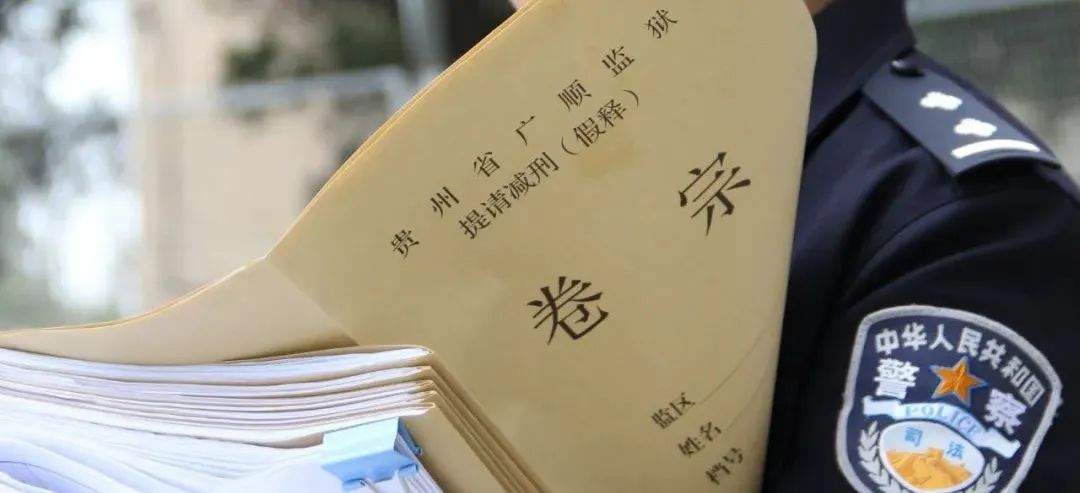 贵州省广顺监狱
提请减刑（假释）
卷宗
监区
姓名
档号
中华人民共和国
警察
POLICE
司法